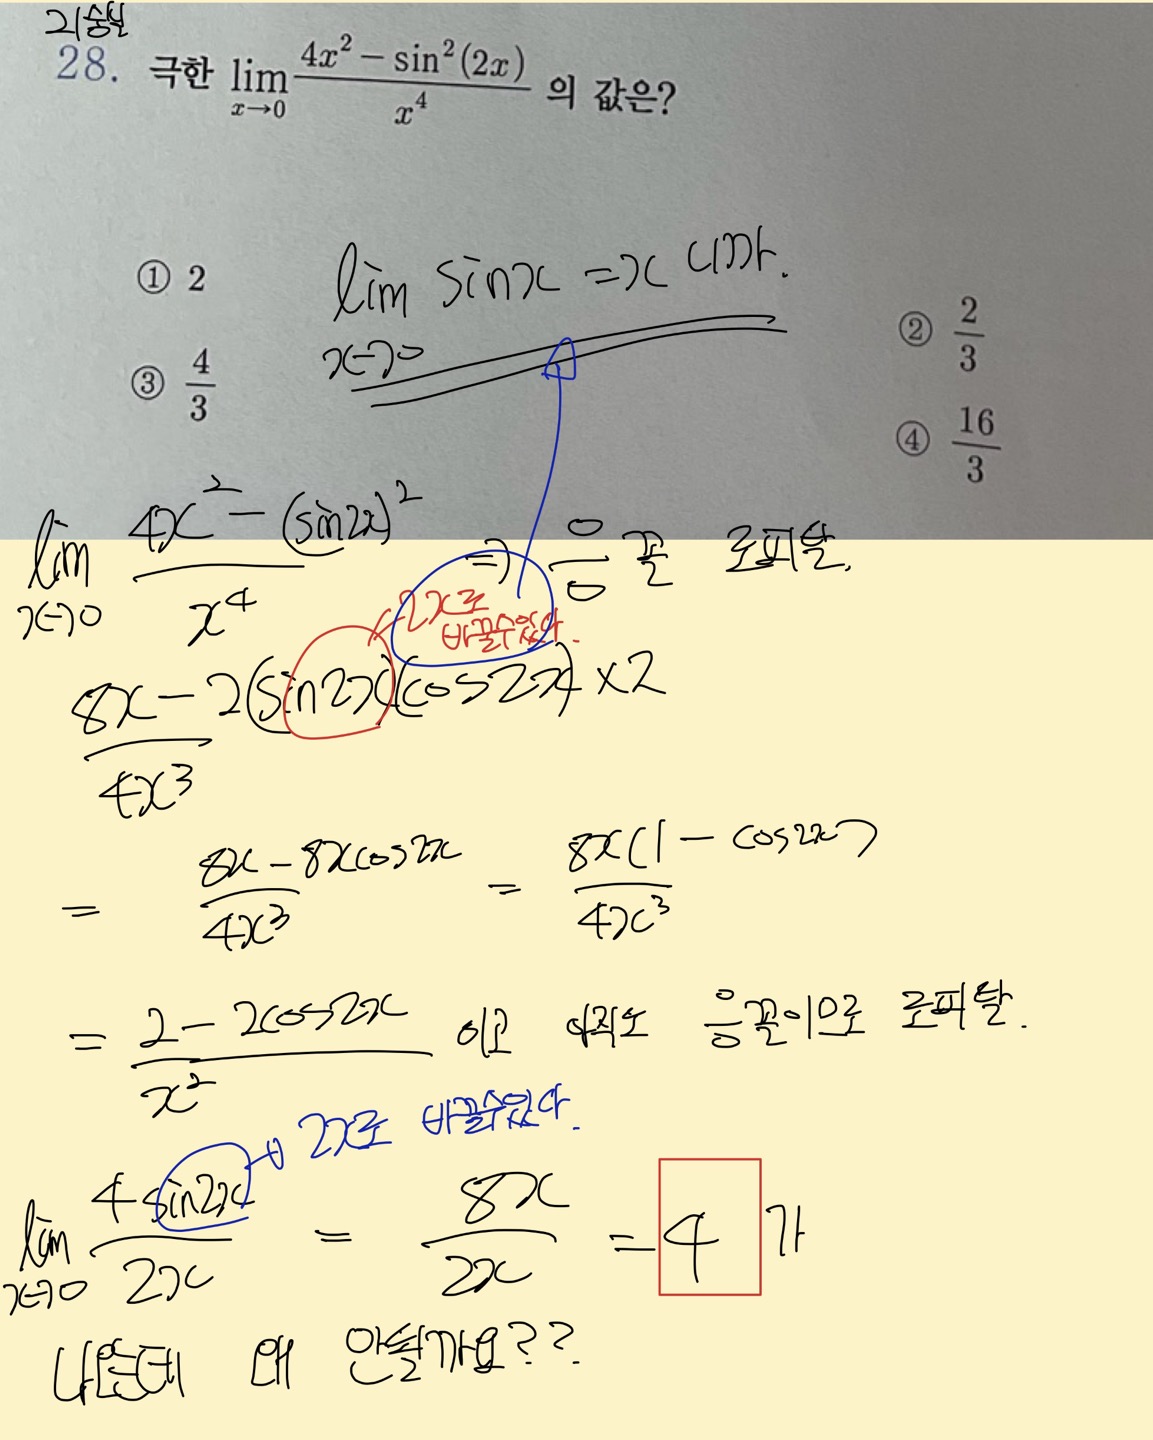 기출변
28. 극한 lim x→0 (4x² − sin²(2x))/x⁴ 의 값은?
① 2
lim x→0 sinx = x 니까.
② 2/3
③ 4/3
④ 16/3
lim x→0 (4x² − (sin2x)²)/x⁴ ⇒ 0/0 꼴 로피탈.
2x로
바꿀수있다.
(8x − 2(sin2x)(cos2x)×2)/4x³
= (8x − 8xcos2x)/4x³ = 8x(1 − cos2x)/4x³
= (2 − 2cos2x)/x² 이고 아직도 0/0꼴이므로 로피탈.
2x로 바꿀수있다.
lim x→0 4sin2x/2x = 8x/2x = 4 가
나오는데 왜 안될까요??